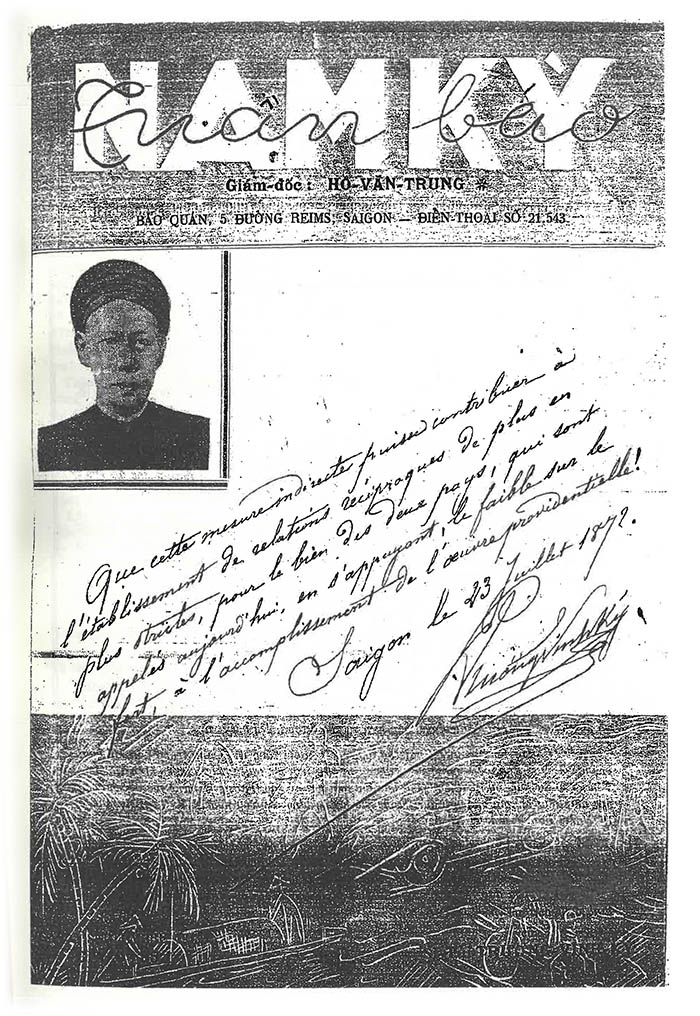 NAM KỲ
Tuần báo
Giám-đốc : HỒ-VĂN-TRUNG
BÁO QUÁN, 5 ĐƯỜNG REIMS, SAIGON — ĐIỆN-THOẠI SỐ 21.543
Que cette mesure indirecte puisse contribuer à
l'établissement de relations réciproques de plus en
plus strictes, pour le bien des deux pays, qui sont
appelés aujourd'hui, en s'appuyant, le faible sur le
fort, à l'accomplissement de l'œuvre providentielle!
Saigon le 23 Juillet 1872.
P. Trương Vĩnh Ký